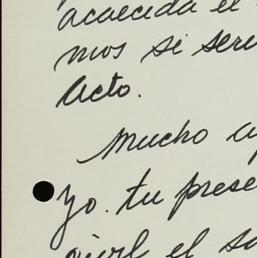 acaecida el
mos si seri
Acto.
Mucho
yo. tu prese
el sa